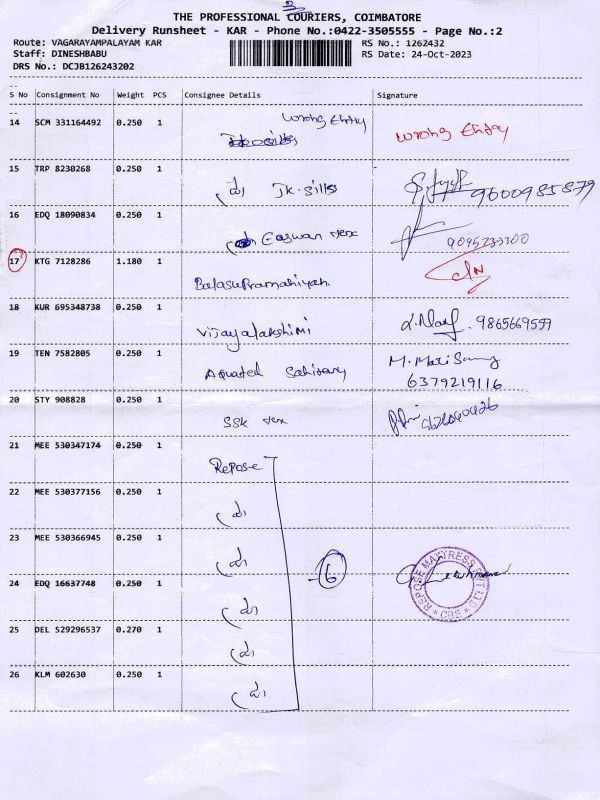 3
THE PROFESSIONAL COURIERS, COIMBATORE
Delivery Runsheet - KAR - Phone No.:0422-3505555 - Page No.:2
Route: VAGARAYAMPALAYAM KAR
RS No.: 1262432
Staff: DINESHBABU
RS Date: 24-Oct-2023
DRS No.: DCJB126243202
S No Consignment No Weight PCS Consignee Details Signature
14 SCM 331164492 0.250 1 Wrong Entry Wrong Entry
15 TRP 8230268 0.250 1 JK. Silks 9600985879
16 EDQ 18090834 0.250 1 Easwan tex
17 KTG 7128286 1.180 1 BalasuPramaniyam
18 KUR 695348738 0.250 1 Vijayalakshimi 9865669559
19 TEN 7582805 0.250 1 Sanitary M. Mari Samy
6379219116
20 STY 908828 0.250 1 SSK tex
21 MEE 530347174 0.250 1 Repose
22 MEE 530377156 0.250 1
23 MEE 530366945 0.250 1
6
REPOSE MATTRESS PVT LTD
CBE
24 EDQ 16637748 0.250 1
25 DEL 529296537 0.270 1
26 KLM 602630 0.250 1